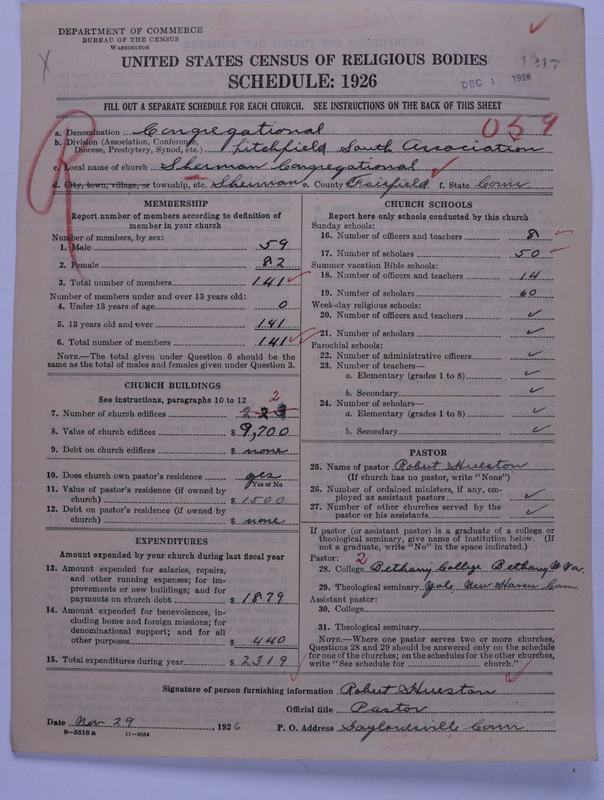 DEPARTMENT OF COMMERCE
BUREAU OF THE CENSUS
WASHINGTON
UNITED STATES CENSUS OF RELIGIOUS BODIES
SCHEDULE: 1926
DEC 1 1926
FILL OUT A SEPARATE SCHEDULE FOR EACH CHURCH. SEE INSTRUCTIONS ON THE BACK OF THIS SHEET
a. Denomination Congregational 059
b. Division (Association, Conference, Diocese, Presbytery, Synod, etc.) Litchfield South Association
c. Local name of church Sherman Congregational
d. City, town, village, or township, etc. Sherman e. County Fairfield f. State Conn
R
MEMBERSHIP
Report number of members according to definition of
member in your church
Number of members, by sex:
1. Male 59
2. Female 82
3. Total number of members 141
Number of members under and over 13 years old:
4. Under 13 years of age 0
5. 13 years old and over 141
6. Total number of members 141
NOTE.—The total given under Question 6 should be the
same as the total of males and females given under Question 3.
CHURCH BUILDINGS
See instructions, paragraphs 10 to 12
2
7. Number of church edifices
8. Value of church edifices $ 9,700
9. Debt on church edifices $ none
10. Does church own pastor's residence yes
Yes or No
11. Value of pastor's residence (if owned by
church) $ 1500
12. Debt on pastor's residence (if owned by
church) $ none
EXPENDITURES
Amount expended by your church during last fiscal year
13. Amount expended for salaries, repairs,
and other running expenses; for im-
provements or new buildings; and for
payments on church debt $ 1879
14. Amount expended for benevolences, in-
cluding home and foreign missions; for
denominational support; and for all
other purposes $ 440
15. Total expenditures during year $ 2319
CHURCH SCHOOLS
Report here only schools conducted by this church
Sunday schools:
16. Number of officers and teachers 8
17. Number of scholars 50
Summer vacation Bible schools:
18. Number of officers and teachers 14
19. Number of scholars 60
Week-day religious schools:
20. Number of officers and teachers
21. Number of scholars
Parochial schools:
22. Number of administrative officers
23. Number of teachers—
a. Elementary (grades 1 to 8)
b. Secondary
24. Number of scholars—
a. Elementary (grades 1 to 8)
b. Secondary
PASTOR
25. Name of pastor Robert Hueston
(If church has no pastor, write "None")
26. Number of ordained ministers, if any, em-
ployed as assistant pastors
27. Number of other churches served by the
pastor or his assistants
If pastor (or assistant pastor) is a graduate of a college or
theological seminary, give name of institution below. (If
not a graduate, write "No" in the space indicated.)
Pastor: 2
28. College Bethany College Bethany W Va.
29. Theological seminary Yale, New Haven Conn
Assistant pastor:
30. College
31. Theological seminary
NOTE.—Where one pastor serves two or more churches,
Questions 28 and 29 should be answered only on the schedule
for one of the churches; on the schedules for the other churches,
write "See schedule for church."
Signature of person furnishing information Robert Hueston
Official title Pastor
Date Nov 29, 1926 P. O. Address Gaylordsville Conn
8-5518 a 11-9054